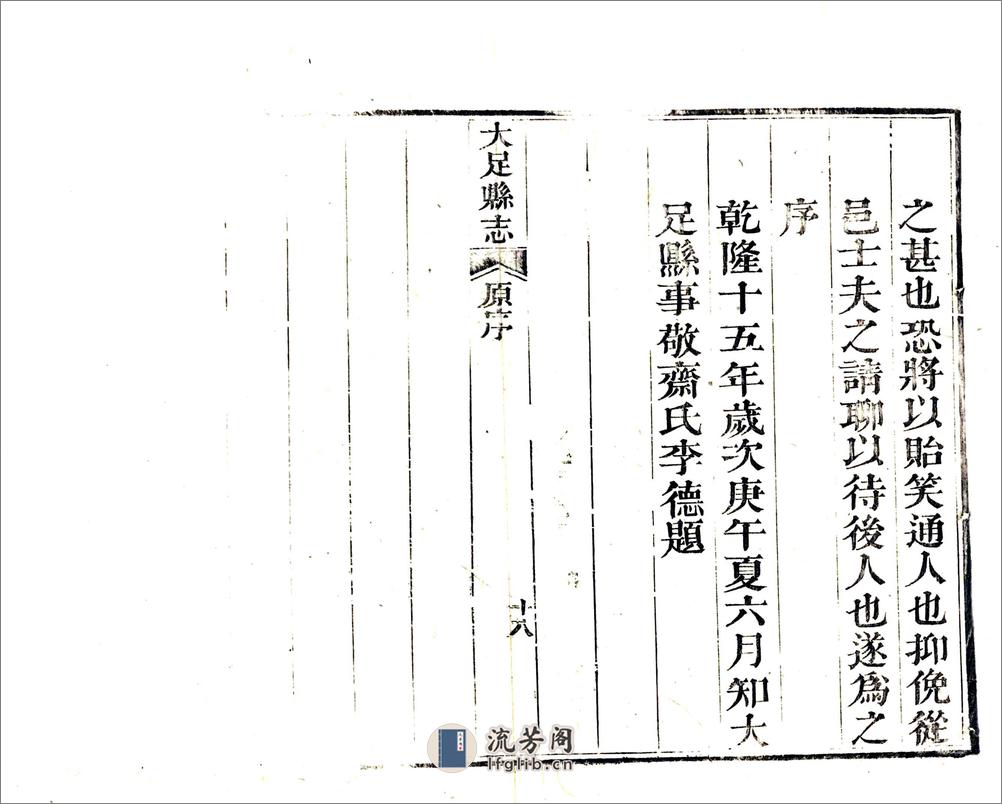 之甚也恐將以貽笑通人也抑俛從
邑士夫之請聊以待後人也遂爲之
序
乾隆十五年歲次庚午夏六月知大
足縣事敬齋氏李德題
大足縣志
原序
十八
流芳阁
lfglib.cn